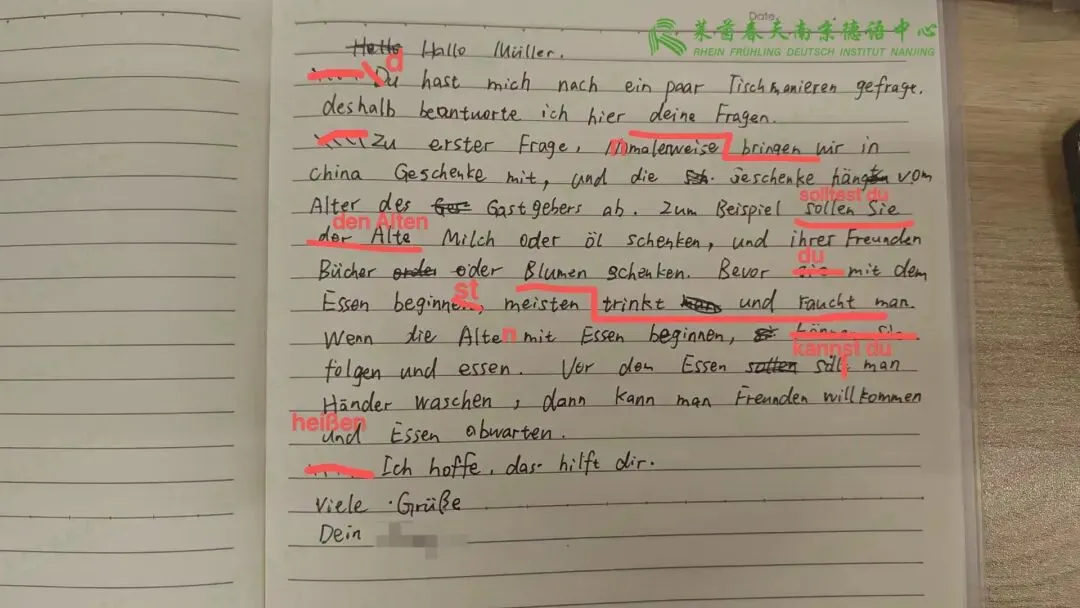 Date.
莱茵春天南京德语中心
RHEIN FRÜHLING DEUTSCH INSTITUT NANJING
Hello Hallo Müller.
d
Du hast mich nach ein paar Tischmanieren gefragt.
deshalb beantworte ich hier deine Fragen.
Zu erster Frage, nmalerweise bringen wir in
China Geschenke mit, und die Geschenke hängen vom
solltest du
Alter des Gastgebers ab. Zum Beispiel sollen Sie
den Alten
der Alte Milch oder öl schenken, und ihrer Freunden
du
Bücher oder Blumen schenken. Bevor sie mit dem
st
Essen beginnen, meisten trinkt und raucht man.
Wenn die Alten mit Essen beginnen, können Sie
kannst du
folgen und essen. Vor dem Essen sollten soll man
Händer waschen, dann kann man Freunden willkommen
heißen
und Essen abwarten.
Ich hoffe, das hilft dir.
Viele Grüße
Dein